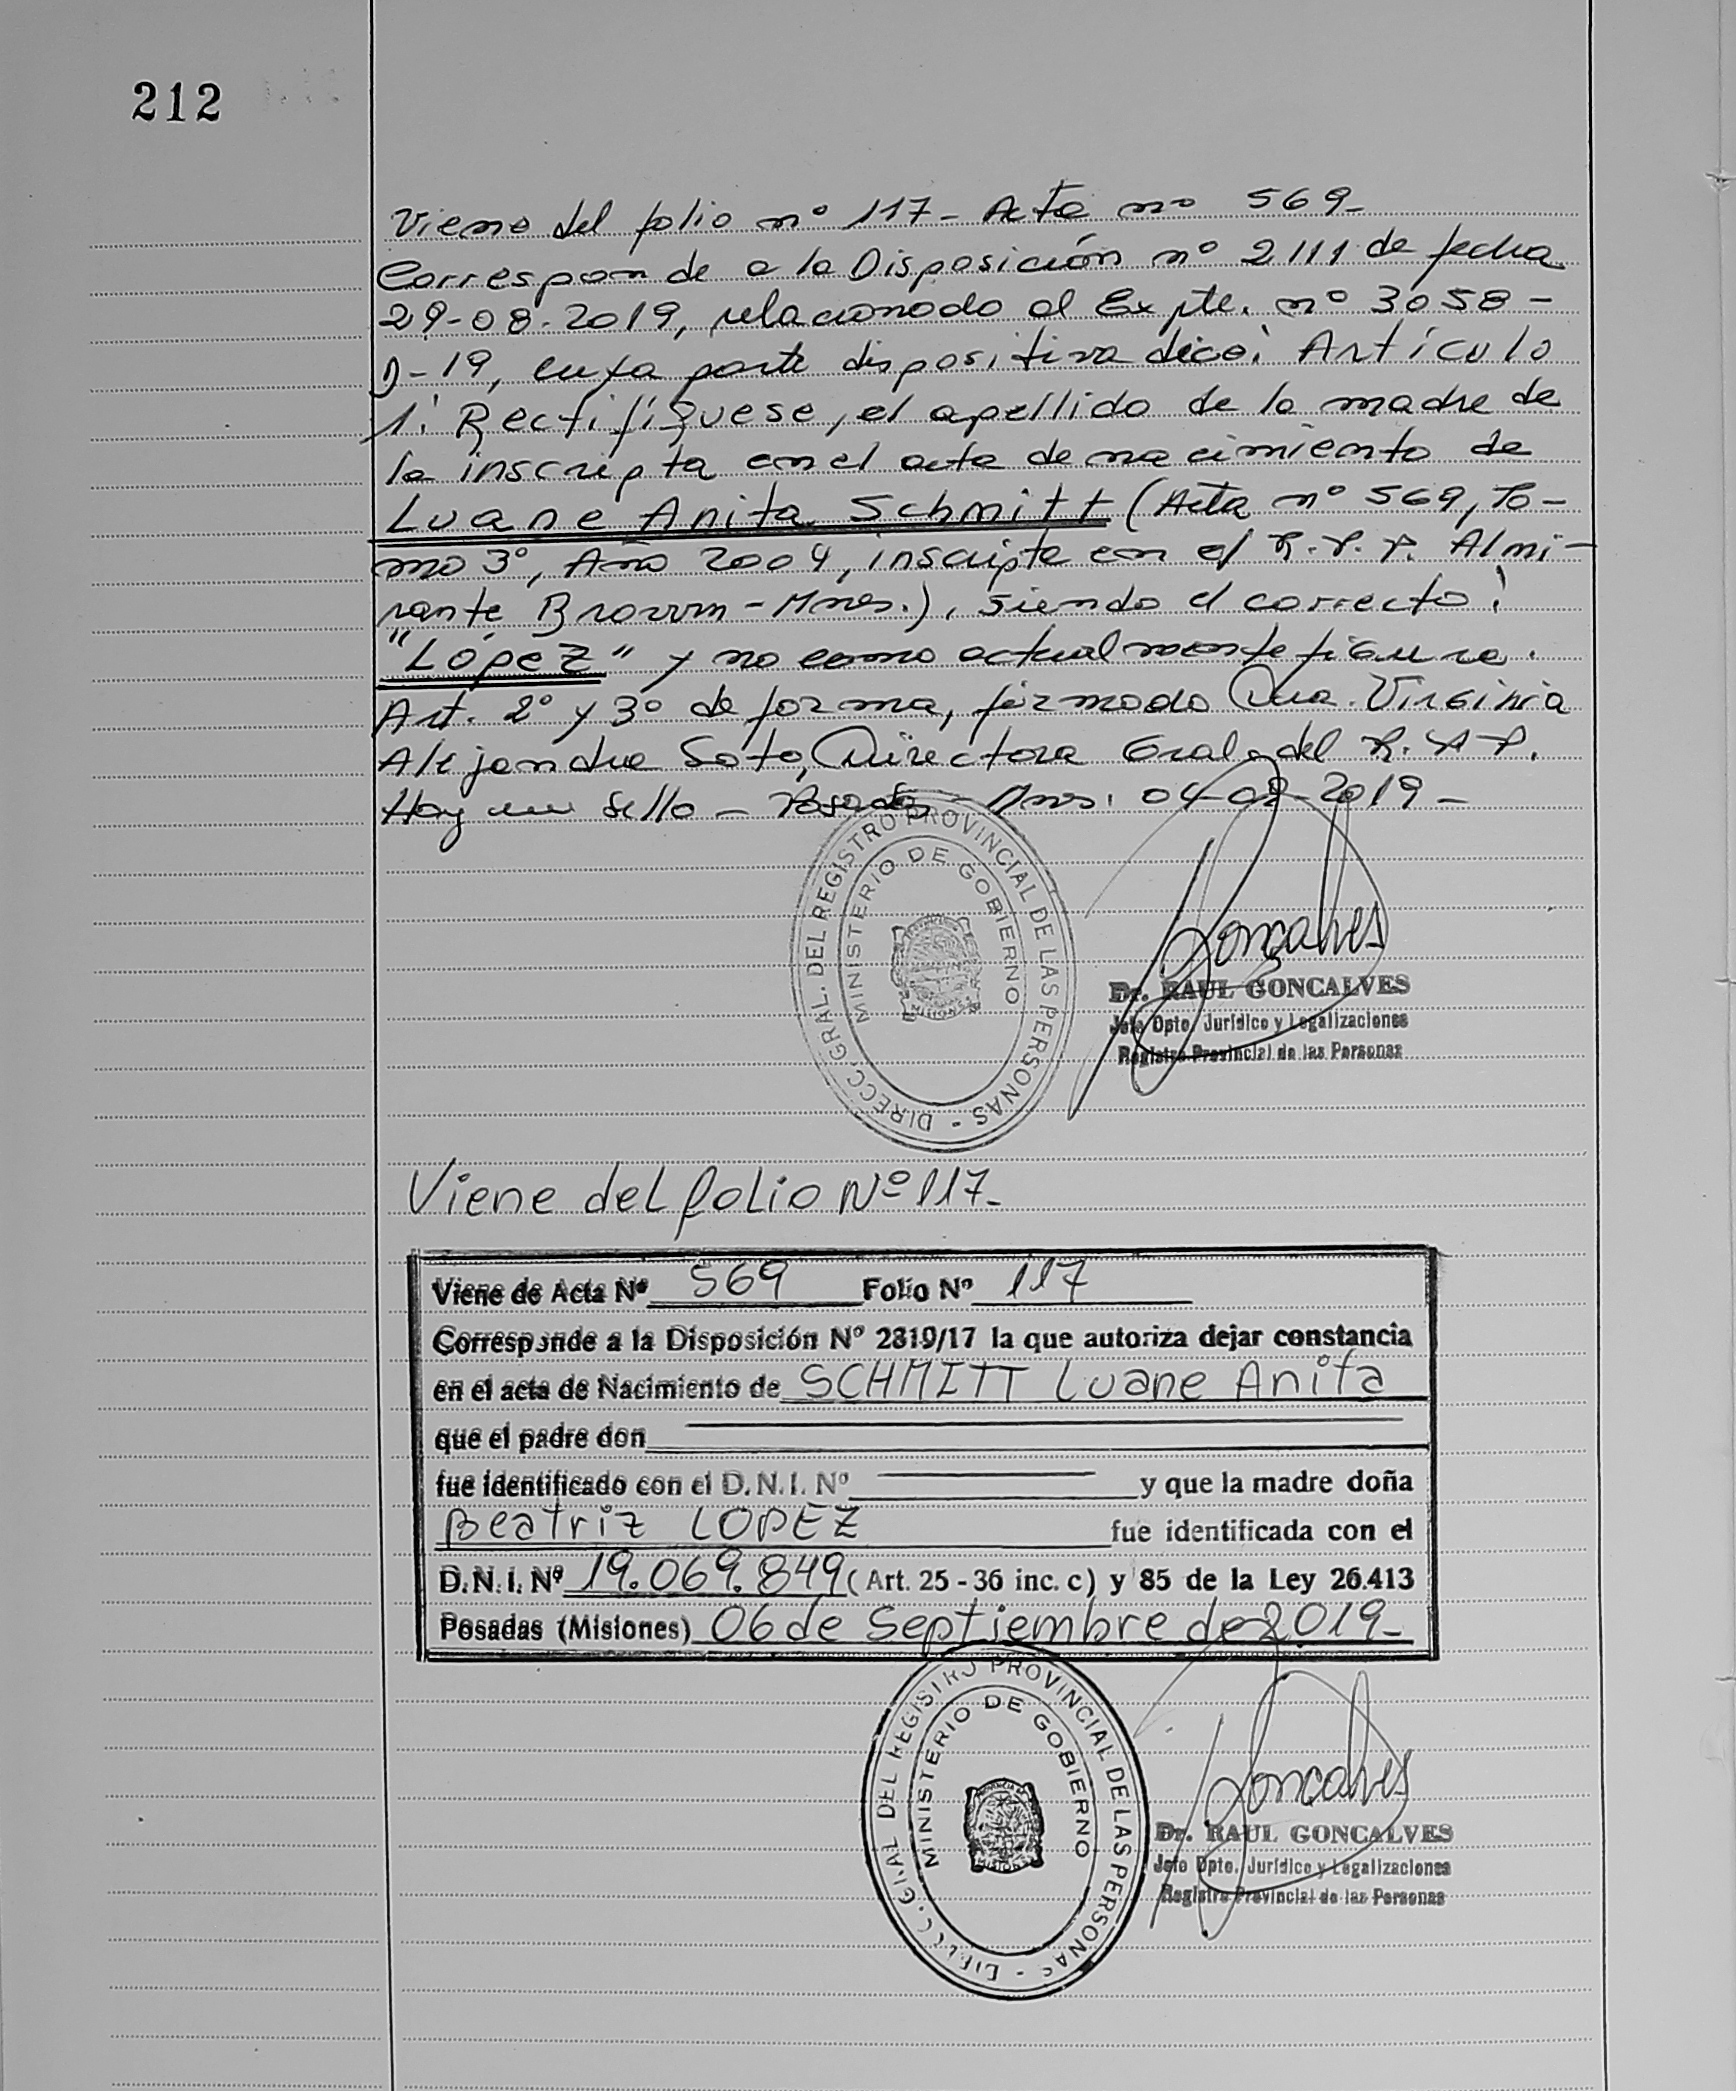 212
Viene del folio nº 117- Acta nº 569-
Corresponde a la Disposición nº 2111 de fecha
29-08-2019, relacionado al Expte. nº 3058-
D-19, cuya parte dispositiva dice: Artículo
1: Rectifíquese, el apellido de la madre de
la inscripta en el acta de nacimiento de
Luane Anita Schmitt (Acta nº 569, To-
mo 3º, Año 2004, inscripta en el R.P.P. Almi-
rante Brown - Mnes.), siendo el correcto:
"López" y no como actualmente figura.
Art. 2º y 3º de forma, firmado Dra. Virginia
Alejandra Soto, Directora Gral. del R.P.P.
Hay un sello - Posadas - Mnes. 04-09-2019-
DIRECC. GRAL. DEL REGISTRO PROVINCIAL DE LAS PERSONAS -
MINISTERIO DE GOBIERNO
MISIONES
Gonçalves
Dr. RAUL GONCALVES
Jefe Dpto. Jurídico y Legalizaciones
Registro Provincial de las Personas
Viene del folio Nº 117-
Viene de Acta Nº 569 Folio Nº 117
Corresponde a la Disposición Nº 2819/17 la que autoriza dejar constancia
en el acta de Nacimiento de SCHMITT Luane Anita
que el padre don
fue identificado con el D.N.I. Nº y que la madre doña
Beatriz LOPEZ fue identificada con el
D.N.I. Nº 19.069.849 (Art. 25 - 36 inc. c) y 85 de la Ley 26.413
Posadas (Misiones) 06 de Septiembre de 2019-
DIRECC. GRAL. DEL REGISTRO PROVINCIAL DE LAS PERSONAS -
MINISTERIO DE GOBIERNO
PROVINCIA DE
MISIONES
Goncalves
Dr. RAUL GONCALVES
Jefe Dpto. Jurídico y Legalizaciones
Registro Provincial de las Personas